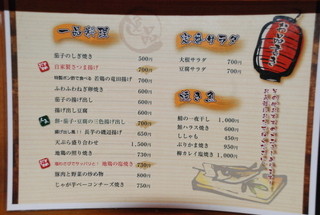 一品料理
茄子のしぎ焼き 500円
自家製さつま揚げ 700円
特製ポン酢で食べる 若鶏の竜田揚げ 700円
ふわふわねぎ卵焼き 600円
茄子の揚げ出し 600円
揚げ出し豆腐 600円
長芋の磯辺揚げ 650円
天ぷら盛り合わせ 1,500円
地鶏の照り焼き 750円
地鶏の塩焼き 750円
豚肉と野菜の炒め物 800円
じゃが芋ベーコンチーズ焼き 750円
サラダ
大根サラダ 700円
豆腐サラダ 700円
焼き魚
鯖の一夜干し 1,000円
鮭ハラス焼き 600円
ししゃも 450円
ぶりかま焼き 950円
柳カレイ塩焼き 1,000円
逸品